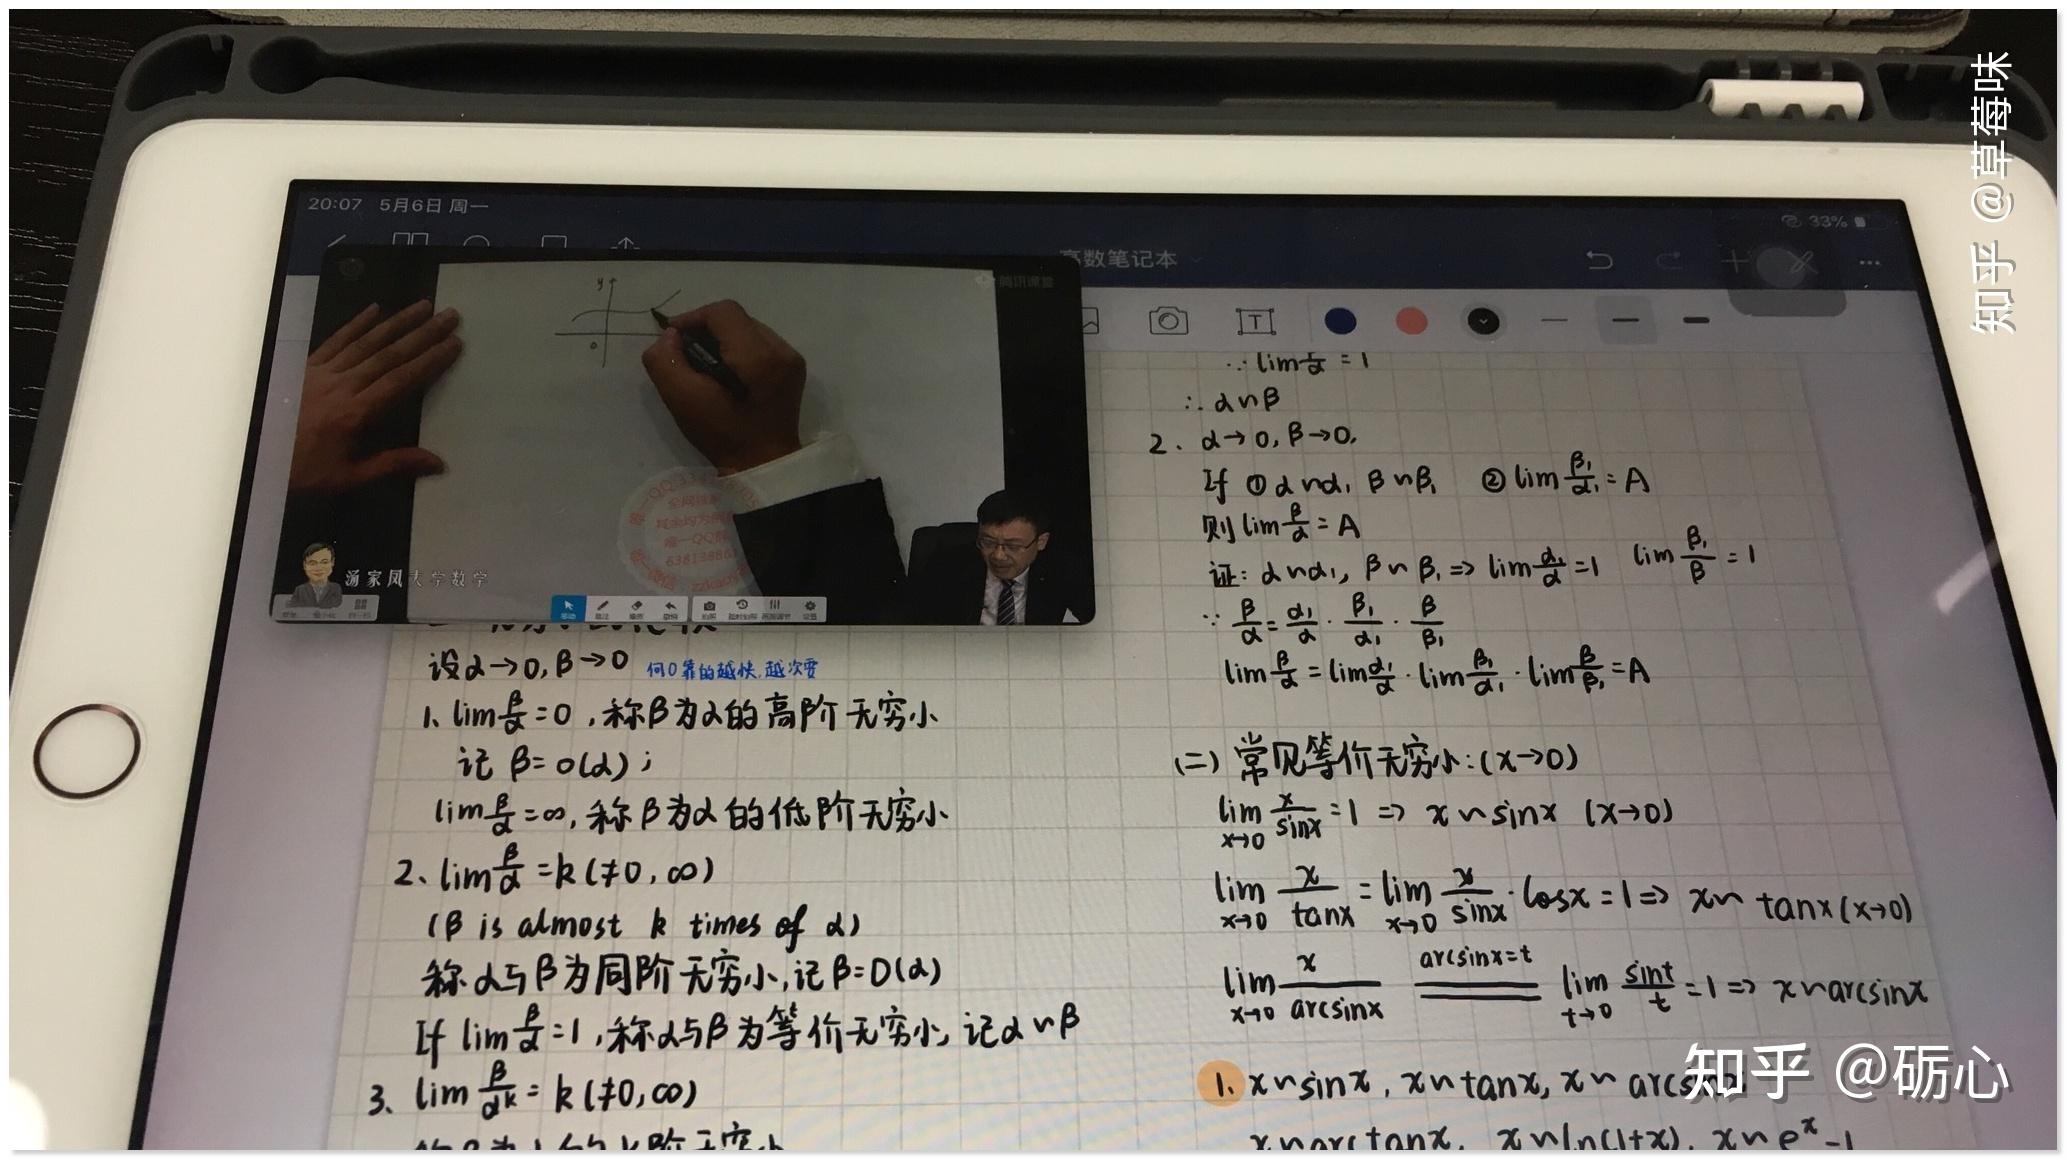 知乎 @草莓味
20:07 5月6日 周一
33%
高数笔记本
腾讯课堂
y
0
汤家凤大学数学
设α→0, β→0 何0靠的越快,越次要
1、lim β/α = 0 ,称β为α的高阶无穷小
记 β= o(α) ;
lim β/α = ∞, 称β为α的低阶无穷小
2、lim β/α = k (≠0, ∞)
(β is almost k times of α)
称α与β为同阶无穷小,记β=O(α)
If lim β/α = 1 ,称α与β为等价无穷小, 记α∽β
3、lim β/α^k = k (≠0, ∞)
∴ α∽β
2. α→0, β→0,
If ① α∽α₁ β∽β₁ ② lim β₁/α₁ = A
则 lim β/α = A
证: α∽α₁, β∽β₁ => lim α₁/α = 1 lim β₁/β = 1
∵ β/α = α₁/α · β₁/α₁ · β/β₁
lim β/α = lim α₁/α · lim β₁/α₁ · lim β/β₁ = A
(二) 常见等价无穷小: (x→0)
lim x→0 x/sinx = 1 => x∽sinx (x→0)
lim x→0 x/tanx = lim x→0 x/sinx · cosx = 1 => x∽tanx (x→0)
lim x→0 x/arcsinx ==(arcsinx=t)== lim t→0 sint/t = 1 => x∽arcsinx
1. x∽sinx , x∽tanx, x∽arcsinx
x∽arctanx, x∽ln(1+x), x∽e^x-1
知乎 @砺心